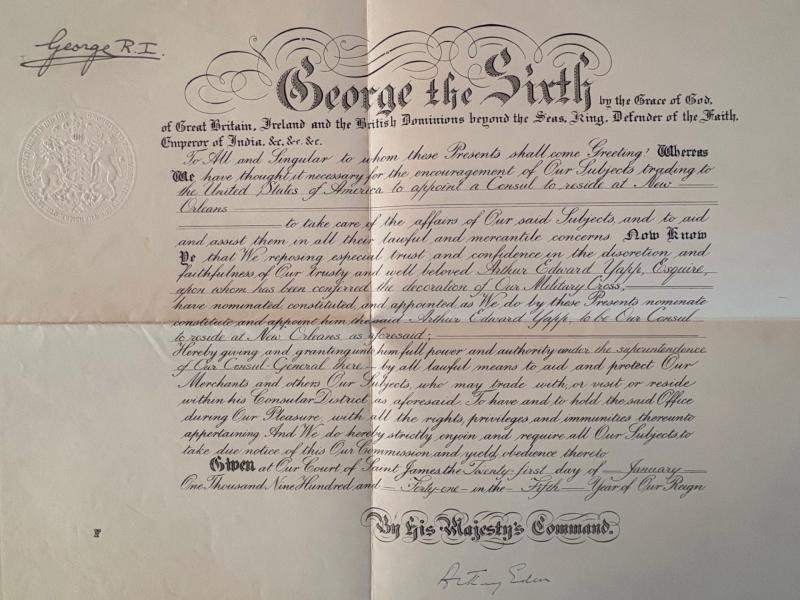 George R.I.
George the Sixth by the Grace of God,
of Great Britain, Ireland and the British Dominions beyond the Seas, King, Defender of the Faith,
Emperor of India, &c, &c, &c.
To All and Singular to whom these Presents shall come Greeting! Whereas
We have thought it necessary for the encouragement of Our Subjects trading to
the United States of America to appoint a Consul to reside at New
Orleans
to take care of the affairs of Our said Subjects, and to aid
and assist them in all their lawful and mercantile concerns. Now Know
Ye that We reposing especial trust and confidence in the discretion and
faithfulness of Our trusty and well beloved Arthur Edward Yapp, Esquire,
upon whom has been conferred the decoration of Our Military Cross,
have nominated, constituted, and appointed as We do by these Presents nominate
constitute and appoint him the said Arthur Edward Yapp, to be Our Consul
to reside at New Orleans as aforesaid;
Hereby giving and granting unto him full power and authority under the superintendence
of Our Consul-General there — by all lawful means to aid and protect Our
Merchants and others Our Subjects, who may trade with, or visit or reside
within his Consular District as aforesaid. To have and to hold the said Office
during Our Pleasure, with all the rights, privileges and immunities thereunto
appertaining And We do hereby strictly enjoin and require all Our Subjects, to
take due notice of this Our Commission and yield obedience thereto
Given at Our Court of Saint James, the Twenty-first day of January
One Thousand Nine Hundred and Forty-one in the Fifth Year of Our Reign
By His Majesty's Command.
F
Anthony Eden